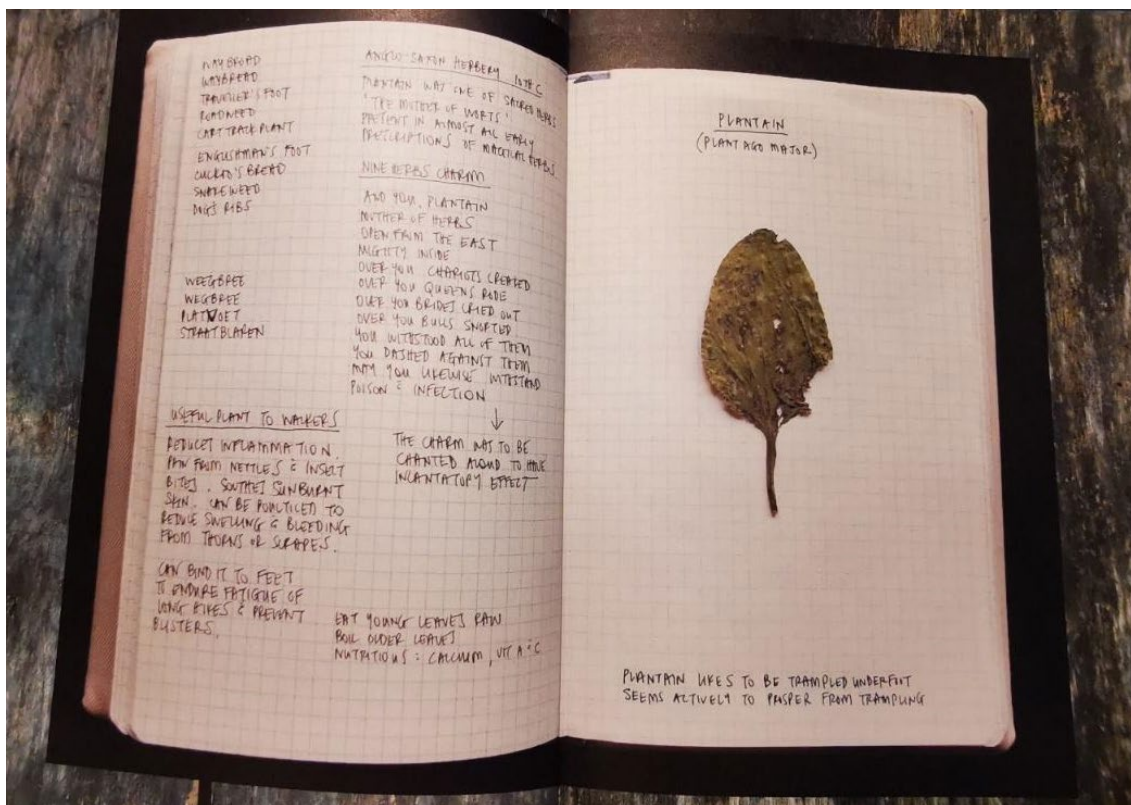 WAYBROAD
WAYBREAD
TRAVELLER'S FOOT
ROADWEED
CART TRACK PLANT
ENGLISHMAN'S FOOT
CUCKOO'S BREAD
SNAKEWEED
DOG'S RIBS
WEEGBREE
WEGBREE
PLATVOET
STRAATBLAREN
USEFUL PLANT TO WALKERS
REDUCES INFLAMMATION.
PAIN FROM NETTLES & INSECT
BITES. SOOTHES SUNBURNT
SKIN. CAN BE POULTICED TO
REDUCE SWELLING & BLEEDING
FROM THORNS OR SCRAPES.
CAN BIND IT TO FEET
TO ENDURE FATIGUE OF
LONG HIKES & PREVENT
BLISTERS.
ANGLO-SAXON HERBERY 10TH C
PLANTAIN WAS ONE OF SACRED HERBS
'THE MOTHER OF WORTS'
PRESENT IN ALMOST ALL EARLY
PRESCRIPTIONS OF MAGICAL HERBS
NINE HERBS CHARM
AND YOU, PLANTAIN
MOTHER OF HERBS
OPEN FROM THE EAST
MIGHTY INSIDE
OVER YOU CHARIOTS CREAKED
OVER YOU QUEENS RODE
OVER YOU BRIDES CRIED OUT
OVER YOU BULLS SNORTED.
YOU WITHSTOOD ALL OF THEM
YOU DASHED AGAINST THEM
MAY YOU LIKEWISE WITHSTAND
POISON & INFECTION
↓
THE CHARM WAS TO BE
CHANTED ALOUD TO HAVE
INCANTATORY EFFECT
EAT YOUNG LEAVES RAW
BOIL OLDER LEAVES
NUTRITIOUS: CALCIUM, VIT A & C
PLANTAIN
(PLANTAGO MAJOR)
PLANTAIN LIKES TO BE TRAMPLED UNDERFOOT
SEEMS ACTIVELY TO PROSPER FROM TRAMPLING